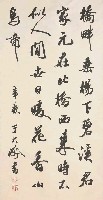 橋畔垂楊下碧溪君
家元在北橋西來時不
似人間世日暖花香山
鳥啼